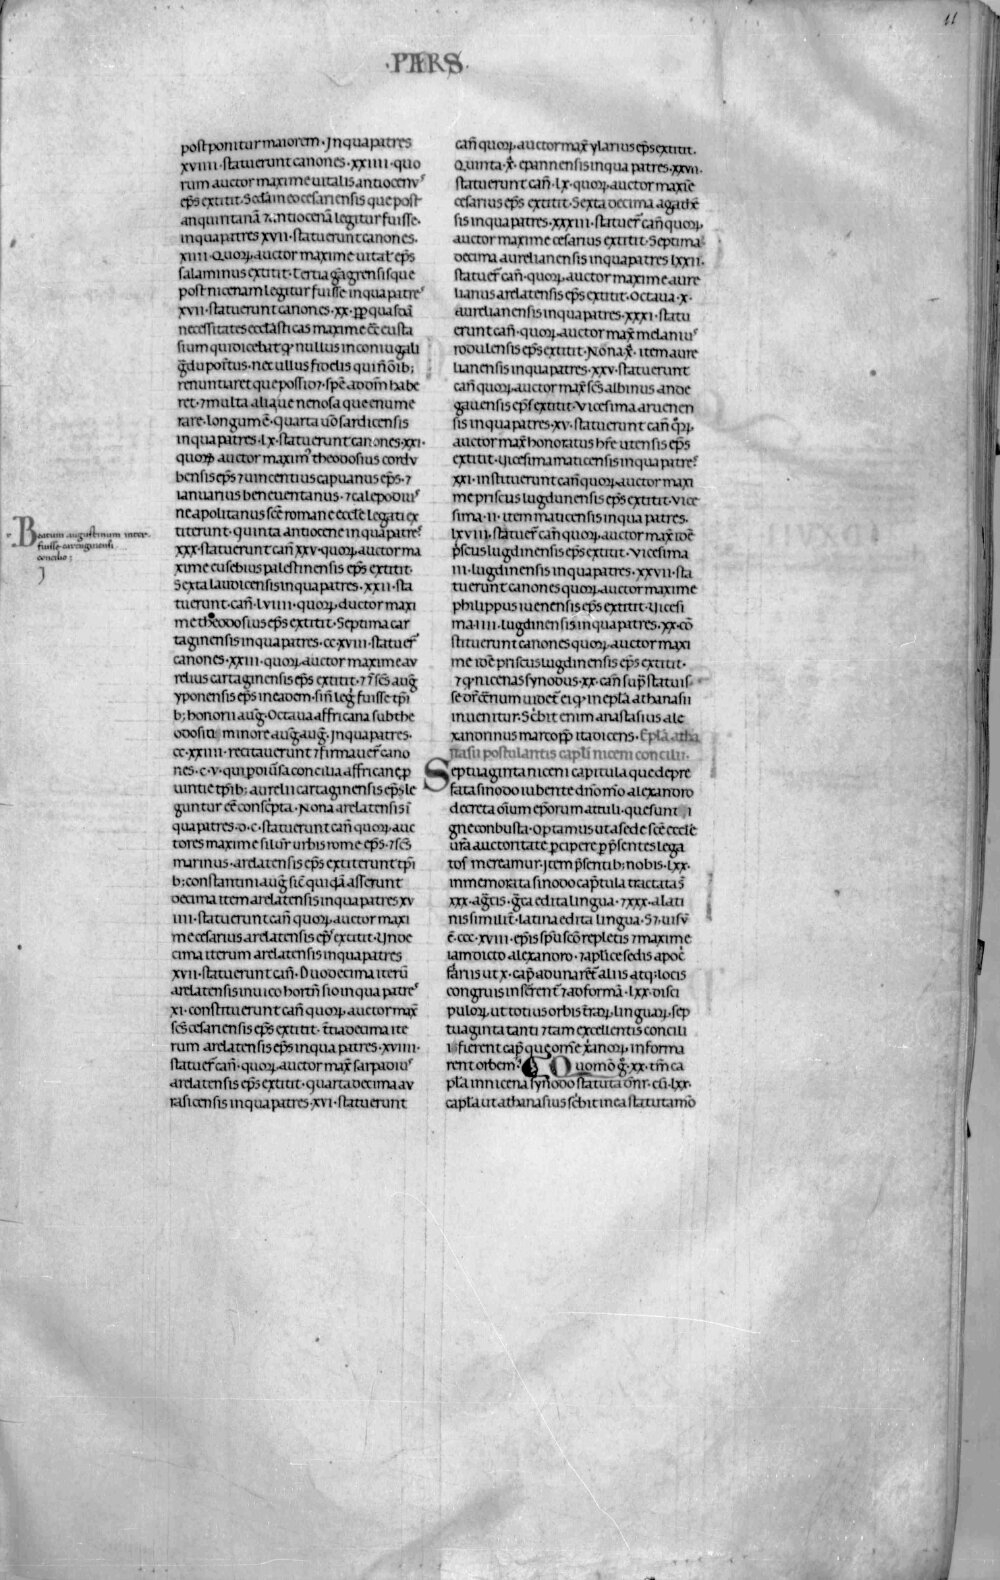 11
·PARS·
postponitur maiorem· Jn qua patres
xviiii· statuerunt canones· xxiiii· quo
rum auctor maxime uitalis antiocenus
ep̄s extitit· Secd̄a in eocesariensis que post
anquiritanā ⁊ antiocenā legitur fuisse·
in qua patres xvii· statuerunt canones·
xiiii· Quoꝝ auctor maxime uitał ep̄s
salaminus extitit· tertia gagrensis que
post nicenam legitur fuisse in qua patres
xvii· statuerunt canones· xx· ꝓp quasdā
necessitates ecclāsticas maxime c̄c eusta
sium qui dicebat qꝫ nullus in coniugali
gͣdu portus· nec ullus fidelis qui n̄ oīb;
renuntiaret que possid⁊· spē ad dōm habe
ret· ⁊ multa aliąue nenosa que enume
rare· longum ē· quarta uō sardicensis
in qua patres· lx· statuerunt canones· xxi·
quoꝝ auctor maxim᷒ theodosius cordu
bensis ep̄s ⁊ uincentius capuanus ep̄s· ⁊
ianuarius beneuentanus· ⁊ calepodiu᷒
neapolitanus sc̄e romane eccłe legati ex
titerunt· quinta antiocene in qua patre᷒
xxx· statuerunt can̄ xxv· quoꝝ auctor ma
xime eusebius palestinensis ep̄s extitit·
Sexta laudicensis in qua patres· xxii· sta
tuerunt· can̄· lviiii· quoꝝ auctor maxi
me theodosius ep̄s extitit· Septima car
taginensis in qua patres· cc·xviii· statuer̄
canones· xxiii· quoꝝ auctor maxime au
relius cartaginensis ep̄s extitit· ⁊ s̄cs auḡ
yponensis ep̄s in eadem· sin̄ leḡ fuisse tp̄i
b; honorii auḡ· Octaua affricana sub the
odosiu minore auḡ auḡ· Jn qua patres·
cc·xxiiii· recitauerunt ⁊ firmauer̄ cano
nes· c·v· qui ꝑ diu̇sa concilia affricane ꝓ
uintie tp̄ib; aurelii cartaginensis ep̄s le
guntur ēē consc̄pta· Nona arelatensis ī
qua patres· d·c· statuerunt can̄ quoꝝ auc
tores maxime siłur̄ urbis rome ep̄s· ⁊ sc̄s
marinus· arelatensis ep̄s extiterunt tp̄i
b; constantini auḡ sic̄ quiqͣ asserunt
Decima item arelatensis in qua patres xv
iiii· statuerunt can̄ quoꝝ auctor maxi
me cesarius arelatensis ep̄s extitit· Unde
cima iterum arelatensis in qua patres
xvii· statuerunt can̄· Duodecima iterū
arelatensis in uico hortn̄sio in qua patre᷒
xi· constituerunt can̄ quoꝝ auctor max̄
sc̄s cesariensis ep̄s extitit· t̄tiadecima ite
rum arelatensis ep̄s in qua patres· xviiii·
statuer̄ can̄· quoꝝ auctor max̄ sarpadiu᷒
arelatensis ep̄s extitit· quartadecima au
rasicensis in qua patres· xvi· statuerunt
Beatum augustinum inter
fuisse cartaginensi
concilio;
can̄ quoꝝ auctor max̄ ylarius ep̄s extitit·
Quinta x̊· epannensis in qua patres· xxvii·
statuerunt can̄· lx· quoꝝ auctor maxīe
cesarius ep̄s extitit· Sexta decima agathē
sis in qua patres· xxxiii· statuer̄ can̄ quoꝝ
auctor maxime cesarius extitit· Septima
decima aurelianensis in qua patres lxxii·
statuer̄ can̄· quoꝝ auctor maxime aure
lianus arelatensis ep̄s extitit· Octaua· x·
aurelianensis in qua patres· xxxi· statu
erunt can̄· quoꝝ auctor max̄ melaniu᷒
rodulensis ep̄s extitit· Nona x̊· item aure
lianensis in qua patres· xxv· statuerunt
can̄ quoꝝ auctor max̄ sc̄s albinus ande
gauensis ep̄s extitit· Vicesima aruenen
sis in qua patres· xv· statuerunt can̄ qͦꝝ·
auctor max̄ honoratus bīte utensis ep̄s
extitit· Vicesima maticensis in qua patre᷒
xxi· instituerunt can̄ quoꝝ auctor maxi
me priscus lugdunensis ep̄s extitit· Vice
sima· ii· item maticensis in qua patres·
lxviii· statuer̄ can̄ quoꝝ auctor max̄ idē
p̄scus lugdinensis ep̄s extitit· Vicesima
iii· lugdinensis in qua patres· xxvii· sta
tuerunt canones quoꝝ auctor maxime
philippus iuenensis ep̄s extitit· Vicesi
ma· iiii· lugdinensis in qua patres· xx· cō
stituerunt canones quoꝝ auctor maxi
me idē priscus lugdinensis ep̄s extitit·
⁊ qꝫ nicenas synodus· xx· can̄ sup̄ statuis
se dr̄ c̄enum uidet̄ eiqꝫ in epła athanasii
inuenitur· Sc̄bit enim anastasius ale
xandrinus marco p̄p ita dicens· Epła atha
nasii postulantis capłi niceni concilii·
Septuaginta niceni capitula que de pre
fata sinodo iubente dn̄o m̄o alexandro
decreta oīum ep̄orum attuli· que sunt i
gne conbusta· Optamus ut a sede sc̄e eccłe
ūra auctoritate ꝑcipere ꝑ p̄sentes lega
tos mereamur· Jtem p̄sentib; nobis· lxx·
in memorata sinodo cap̄tula tractata s̄
xxx· aḡcis· gͣca edita lingua· ⁊ xxx· a lati
nis similit̄· latina edita lingua· S⁊ uisū
ē· ccc·xviii· ep̄is sp̄u sc̄o repletis ⁊ maxime
iam dicto alexandro· ⁊ aplīce sedis apoc̄
sariis ut x· cap̄ adunarēt aliis atqꝫ locis
congruis insērent̄ ⁊ ad formā· lxx· disci
puloꝝ· ut totius orbis t̄raꝝ· linguaꝝ· sep
tuaginta tanti ⁊ tam excellentis concili
i· fierent cap̄ que om̄e x̄ianoꝝ informa
rent orbem· Quomō g̊· xx· tm̄ ca
pła in nicena synodo statuta dn̄r· cū· lxx·
capła ut athanasius sc̄bit in ea statuta mō